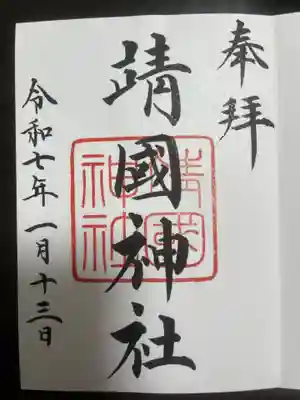 奉拝
靖國神社
靖國
神社
令和七年一月十三日